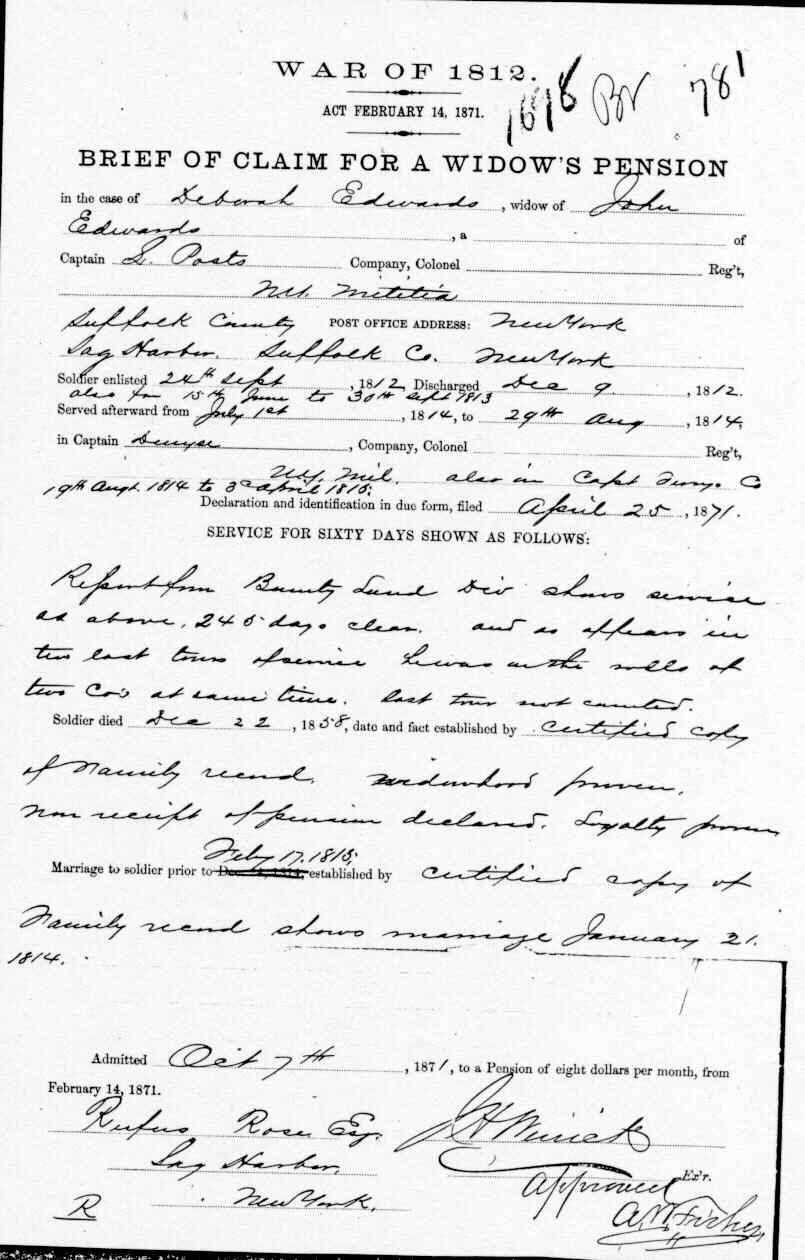 WAR OF 1812.
1678 BN 781
ACT FEBRUARY 14, 1871.
BRIEF OF CLAIM FOR A WIDOW'S PENSION
in the case of Deborah Edwards, widow of John
Edwards, a of
Captain S. Posts Company, Colonel Reg't,
Militia
Suffolk County POST OFFICE ADDRESS: New York
Sag Harbor. Suffolk Co. New York
Soldier enlisted 24th Sept, 1812, Discharged Dec 9, 1812.
also from 15th June to 30th Sept 1813
Served afterward from July 1st, 1814, to 29th Aug, 1814,
in Captain Denyse, Company, Colonel Reg't,
NY. Mil. also in Capt Terry. Co
19th Augt. 1814 to 3d April 1815;
Declaration and identification in due form, filed April 25, 1871.
SERVICE FOR SIXTY DAYS SHOWN AS FOLLOWS:
Report from Bounty Land Div shows service
as above, 245 days clear. and as appears in
two last tours of service he was on the rolls of
two Cos at same time. last tour not counted.
Soldier died Dec 22, 1858, date and fact established by certified copy
of Family record. Widowhood proven.
Non receipt of pension declared. Loyalty proven
Feby 17. 1815;
Marriage to soldier prior to established by certified copy of
Family record shows marriage January 21.
1814.
Admitted Oct 7th, 1871, to a Pension of eight dollars per month, from
February 14, 1871.
Rufus Rose Esq.
Sag Harbor,
New York.
Ex'r.
Approved
R